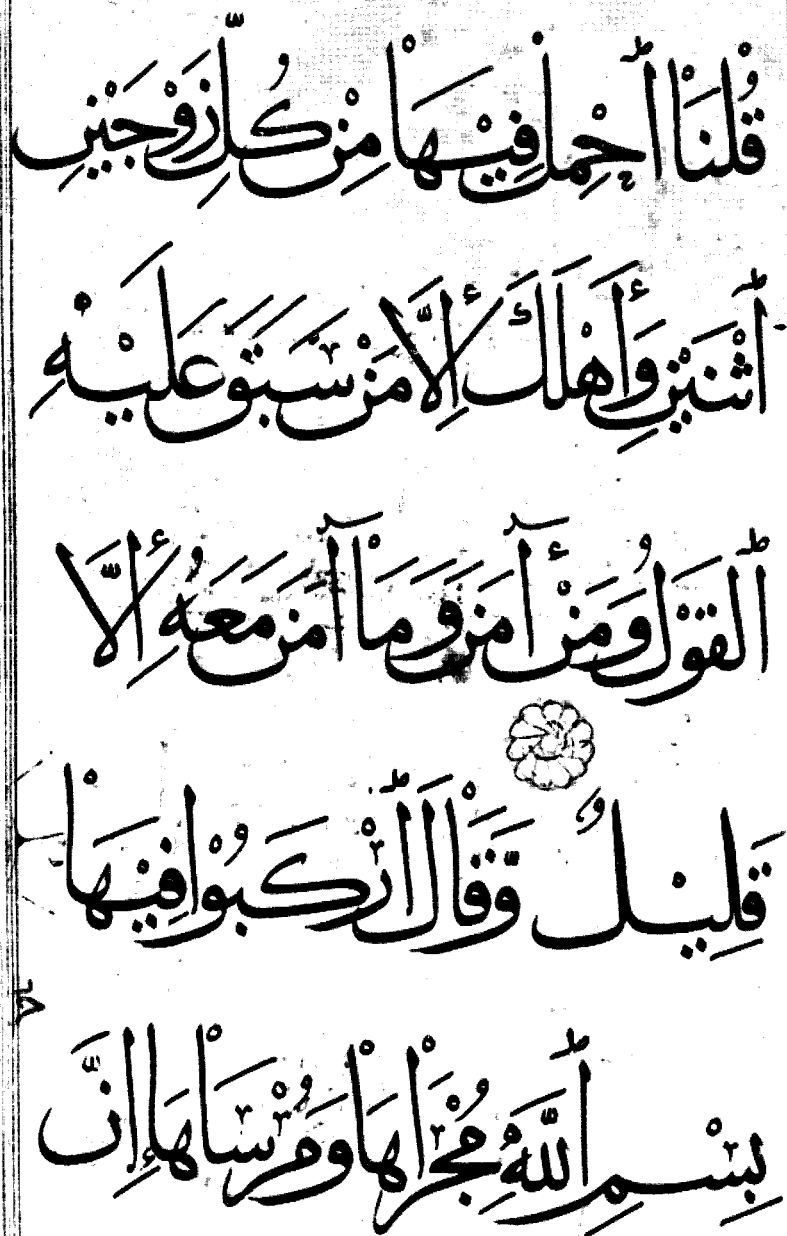 قُلْنَا ٱحْمِلْ فِيْهَا مِنْ كُلِّ زَوْجَيْنِ
ٱثْنَيْنِ وَأَهْلَكَ إِلَّا مَنْ سَبَقَ عَلَيْهِ
ٱلْقَوْلُ وَمَنْ أٓمَنَ وَمَا أٓمَنَ مَعَهُ إِلَّا
قَلِيْلٌ وَّقَالَ ٱرْكَبُوْا فِيْهَا
بِسْمِ ٱللَّهِ مُجْرَاهَا وَمُرْسَاهَا إِنَّ